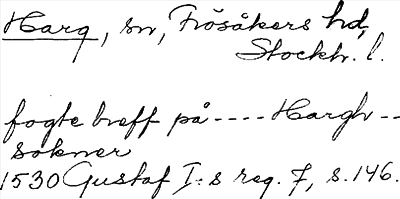 Harg, sn, Frösåkers hd,
Stockh. l.
fogte breff på ---- Hargh --
sokner
1530 Gustaf I:s reg. 7, s. 146.